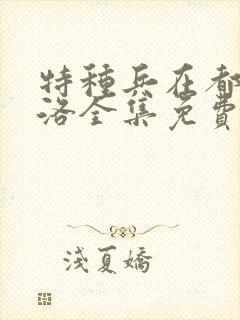 特種兵在都
洛全集免費
淺夏嬌